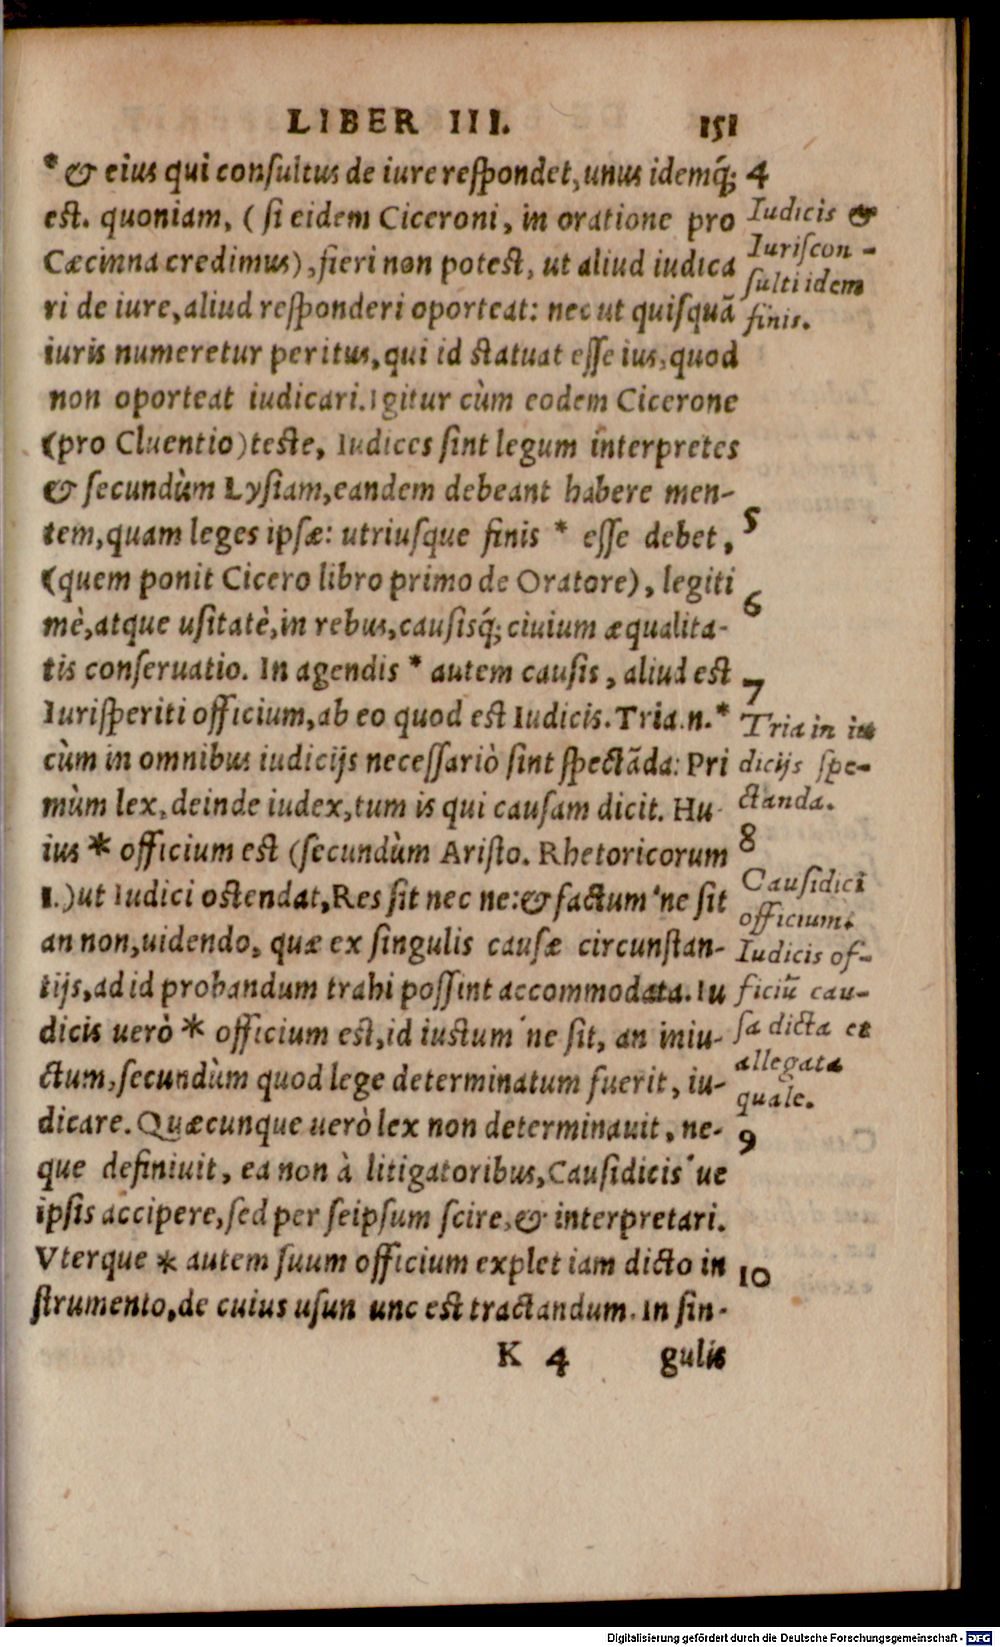 LIBER III. 151
* & eius qui consultus de iure respondet, unus idemq́;
est. quoniam, ( si eidem Ciceroni, in oratione pro
Cæcinna credimus), fieri non potest, ut aliud iudica
ri de iure, aliud responderi oporteat: nec ut quisquã
iuris numeretur peritus, qui id statuat esse ius, quod
non oporteat iudicari. Igitur cùm eodem Cicerone
(pro Cluentio) teste, Iudices sint legum interpretes
& secundùm Lysiam, eandem debeant habere men-
tem, quam leges ipsæ: utriusque finis * esse debet,
(quem ponit Cicero libro primo de Oratore), legiti
mè, atque usitatè, in rebus, causisq́; ciuium æqualita-
tis conseruatio. In agendis * autem causis, aliud est
Iurisperiti officium, ab eo quod est Iudicis. Tria.n.*
cùm in omnibus iudicijs necessariò sint spectãda: Pri
mùm lex, deinde iudex, tum is qui causam dicit. Hu-
ius * officium est (secundùm Aristo. Rhetoricorum
I.) ut Iudici ostendat, Res sit nec ne: & factum'ne sit
an non, uidendo, quæ ex singulis causæ circunstan-
tijs, ad id probandum trahi possint accommodata. Iu
dicis uerò * officium est, id iustum'ne sit, an iniu-
ctum, secundùm quod lege determinatum fuerit, iu-
dicare. Quæcunque uerò lex non determinauit, ne-
que definiuit, ea non à litigatoribus, Causidicis'ue
ipsis accipere, sed per seipsum scire, & interpretari.
Vterque * autem suum officium explet iam dicto in
strumento, de cuius usun unc est tractandum. In sin-
K 4 gulis
4
Iudicis &
Iuriscon-
sulti idem
finis.
5
6
7
Tria in iu
dicijs spe-
ctanda.
8
Causidici
officium.
Iudicis of-
ficiũ cau-
sa dicta et
allegata
quale.
9
10
Digitalisierung gefördert durch die Deutsche Forschungsgemeinschaft - DFG